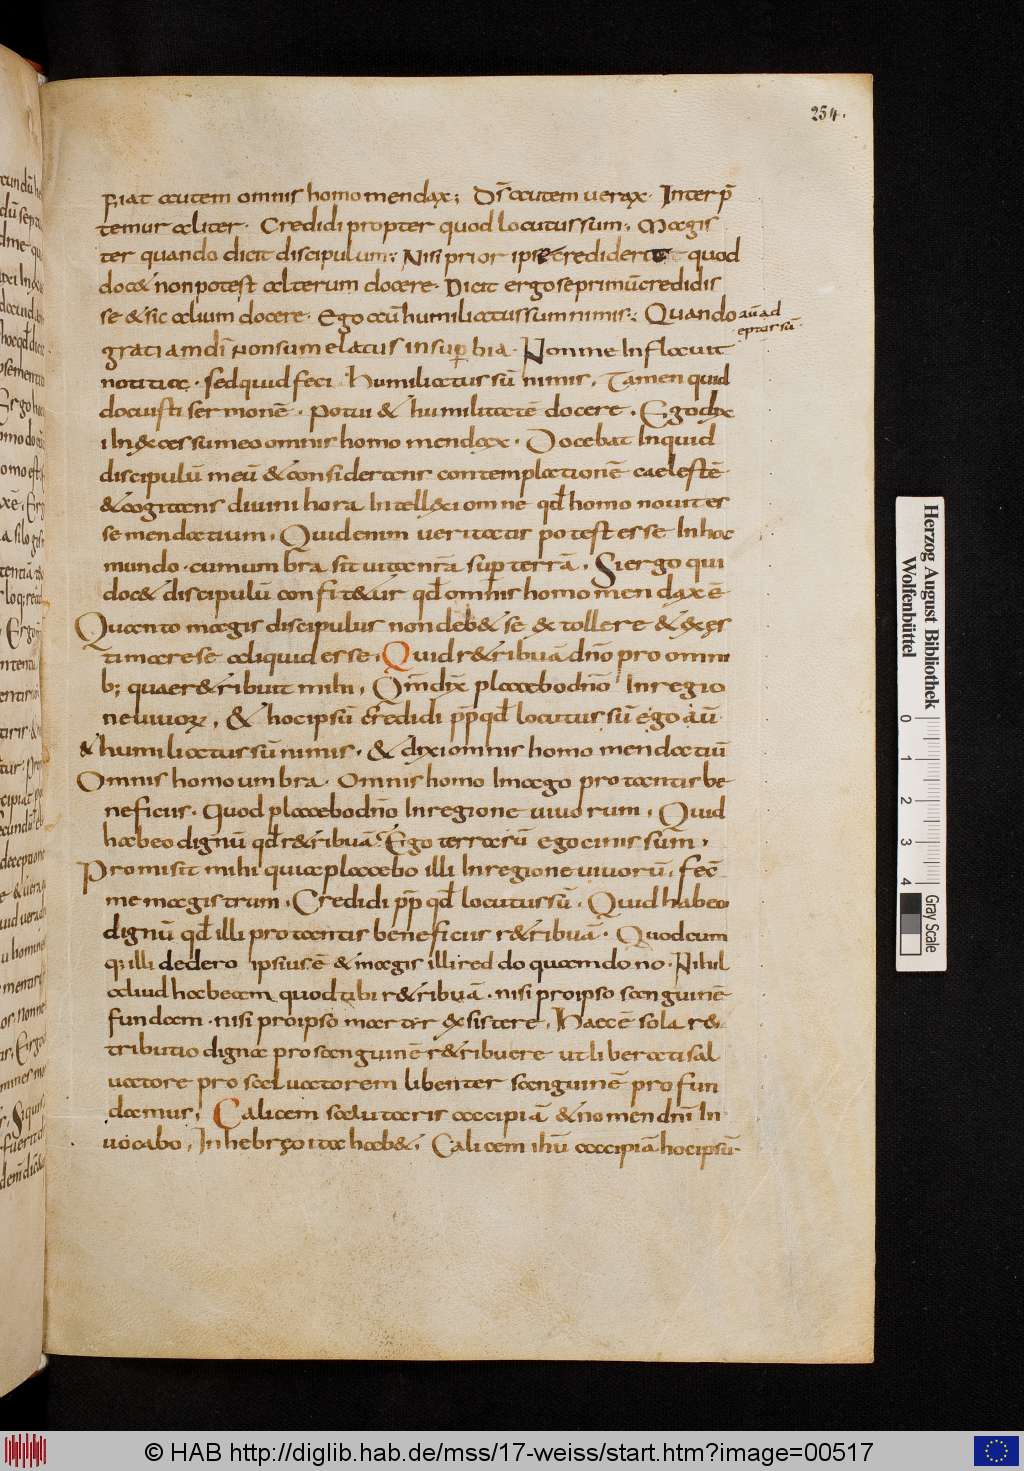 254.
Fiat autem omnis homo mendax; Ds̄ autem verax. Interp̄
temur aliter. Credidi propter quod locutus sum; Magis
ter quando dicit discipulum; Nisi prior ipse crediderit quod
doc& non potest alterum docere. Dicit ergo se primū credidis
se & sic alium docere. Ego aū humiliatus sum nimis; Quando
aū ad
eptus sū
gratiam dī non sum elatus in superbia. Non me Inflavit
notitia. sed quid feci humiliatus sū nimis, Tamen quid
docuisti sermonē. Potui & humilitatē docere. Ego dix
i In excessu meo omnis homo mendax. Docebat Inquid
discipulū meū & considerans contemplationē caelestē
& cogitans divini hora Intellexi omne qd̄ homo novit es
se mendatium. Quid enim veritatis potest esse In hoc
mundo. cum umbra sit vita nr̄a sup terrā, Si ergo qui
doc& discipulū confit&ur qd̄ omnis homo mendax ē
Quanto magis discipulus non deb& se extollere & exęs
timare se aliquid esse, Quid r&ribuā dn̄o pro omni
b; quae r&ribuit mihi, Om̄ dix placebo dn̄o In regio
ne vivoꝝ, & hoc ipsū credidi pp̄ qd̄ locutus sū ego aū
& humiliatus sū nimis. & dixi omnis homo mendatiū
Omnis homo umbra. Omnis homo Imago pro tantis be
neficiis. Quod placebo dn̄o In regione vivorum, Quid
habeo dignū qd̄ r&ribuā? Ego terra sū ego cinis sum,
Promisit mihi quia placebo illi In regione vivorū, fec̄
me magistrum, Credidi pp̄ qd̄ locutus sū. Quid habeo
dignū qd̄ illi pro tantis beneficiis r&ribuā. Quodcum
q; illi dedero ipsius ē & magis illi reddo quam dono. Nihil
aliud habeam quod tibi r&ribuā. nisi pro ipso sanguinē
fundam. nisi pro ipso martyr existere, Haec ē sola r&
tributio digna pro sanguinē r&ribuere ut liberati sal
vatore pro salvatorem libenter sanguinē profun
damus, Calicem salutaris accipiā & nomen dn̄i In
vocabo, In hebręo ita hab&, Calicem ihū accipiā hoc ipsū
Herzog August Bibliothek
Wolfenbüttel
0 1 2 3 4
Gray Scale
© HAB http://diglib.hab.de/mss/17-weiss/start.htm?image=00517